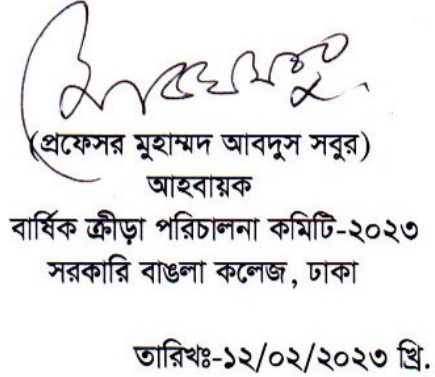 (প্রফেসর মুহাম্মদ আবদুস সবুর)
আহবায়ক
বার্ষিক ক্রীড়া পরিচালনা কমিটি-২০২৩
সরকারি বাঙলা কলেজ, ঢাকা
তারিখঃ-১২/০২/২০২৩ খ্রি.